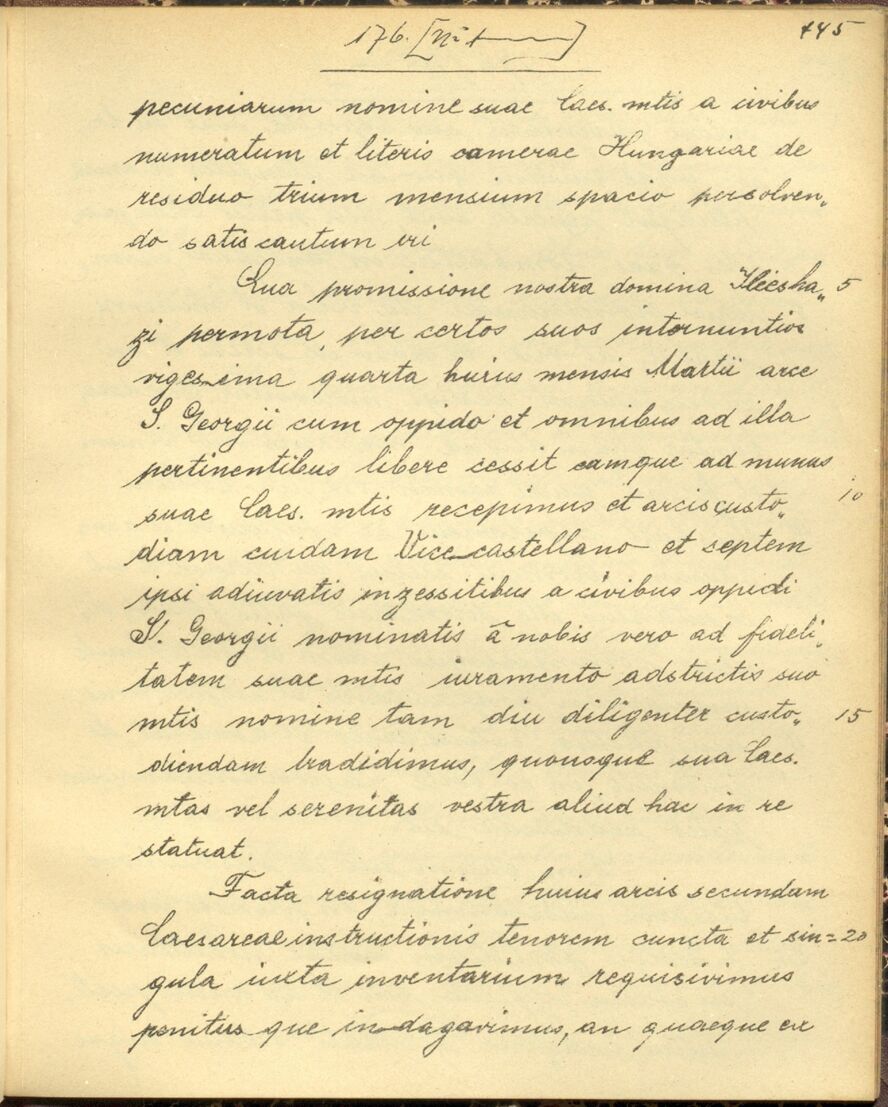 176.
445
pecuniarum nomine suae Caes. mtis a civibus
numeratum et literis camerae Hungariae de
residuo trium mensium spacio persolven„
do satis cautum iri
Qua promissione nostra domina Illiesha„ 5
zi permota, per certos suos internuntios
vigesima quarta huius mensis Martii arce
S. Georgii cum oppido et omnibus ad illa
pertinentibus libere cessit eamque ad manus
suae Caes. mtis recepimus et arcis custo„ 10
diam cuidam Vice castellano et septem
ipsi adiuvatis a civibus oppidi
S. Georgii nominatis ā nobis vero ad fideli„
tatem suae mtis iuramento adstrictis suo
mtis nomine tam diu diligenter custo„ 15
diendam tradidimus, quousque sua Caes.
mtas vel serenitas vestra aliud hac in re
statuat.
Facta resignatione huius arcis secundam
Caesareae instructionis tenorem cuncta et sin= 20
gula iuxta inventarium requisivimus
penitus que indagavimus, an quaeque ex